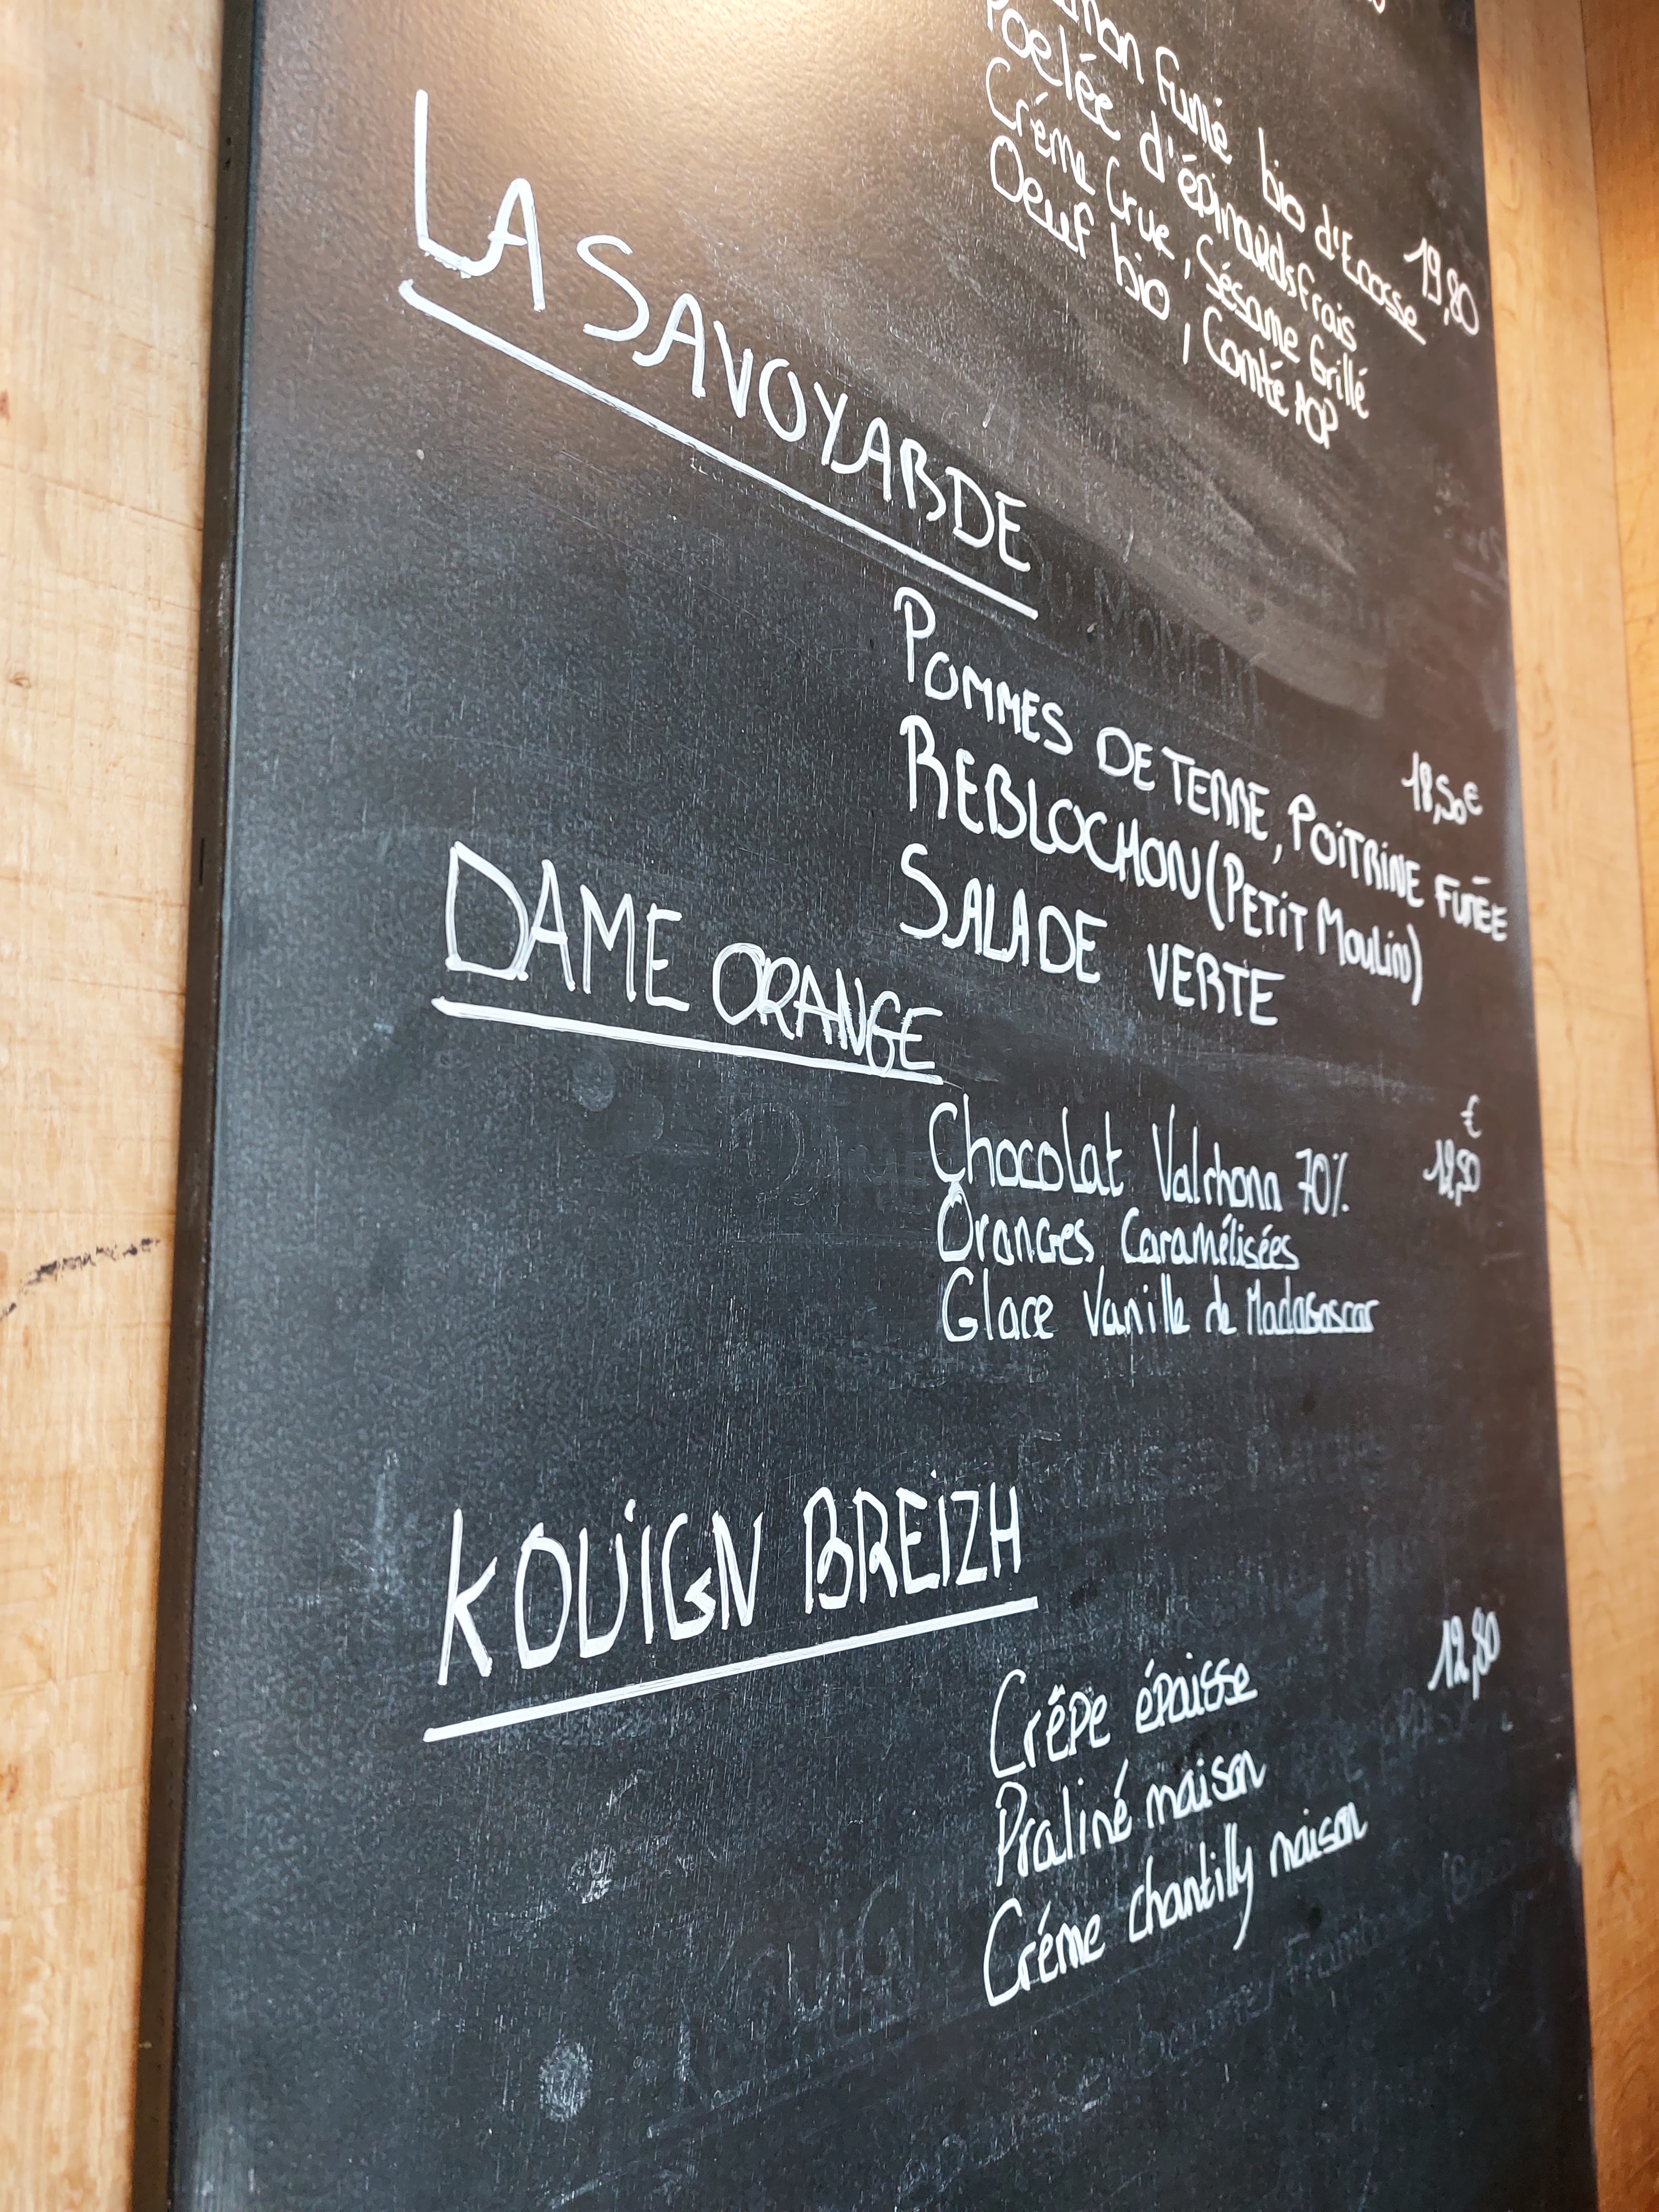 Fumé bio d'Ecosse 19,80
Poelée d'épinards frais
Crème Crue, Sésame Grillé
Oeuf bio, Comté AOP
LA SAVOYARDE
POMMES DE TERRE, POITRINE FUMÉE 18,50€
REBLOCHON (PETIT MOULIN)
SALADE VERTE
DAME ORANGE
Chocolat Valrhona 70% 12,50 €
Oranges Caramélisées
Glace Vanille de Madagascar
KOUIGN BREIZH
Crêpe épaisse 12,80
Praliné maison
Crème chantilly maison